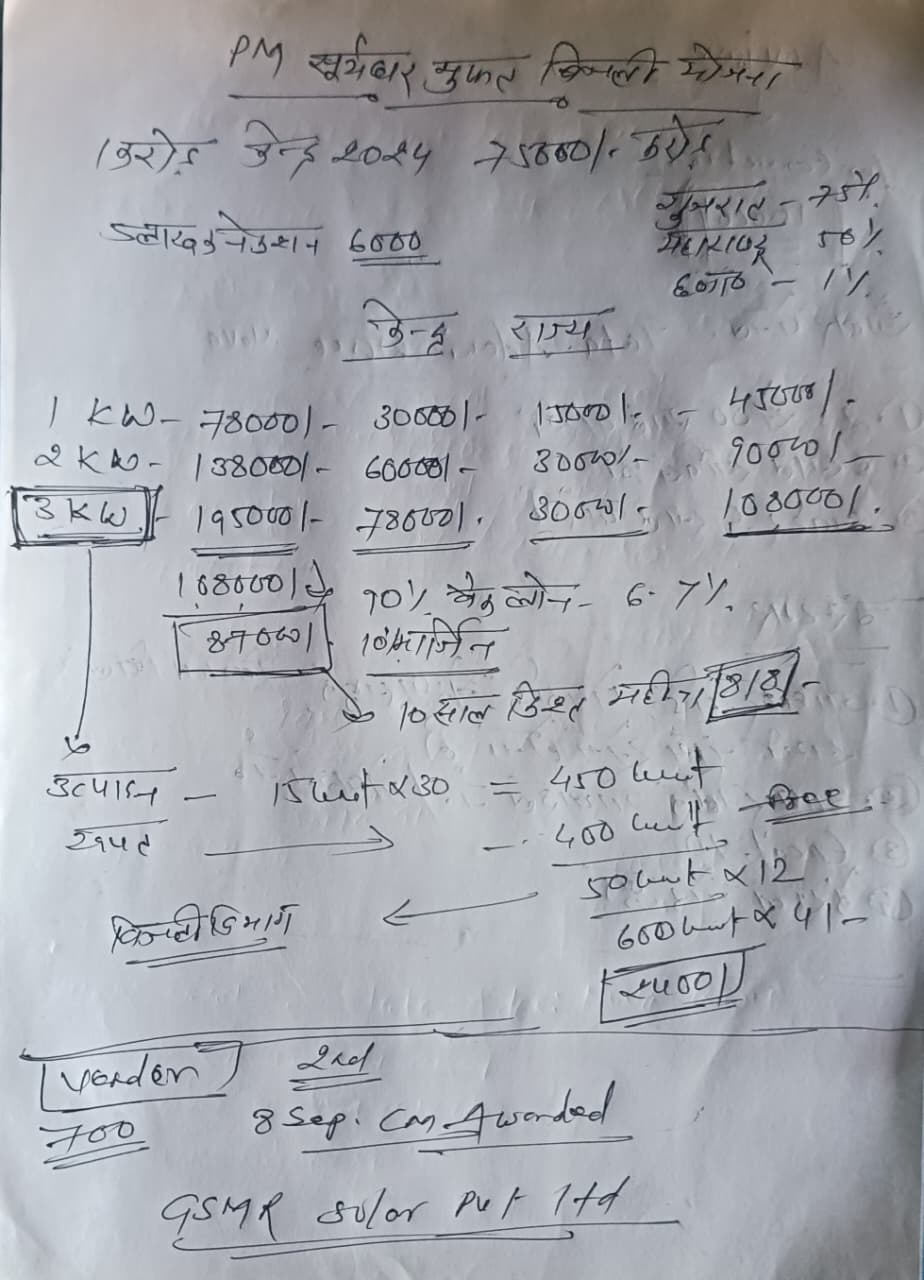 PM सूर्यघर मुफत बिजली योजना
1 करोड़ केन्द्र 2024 75000/- करोड़
गुजरात - 75%
5 लाख कनेक्शन 6000
महाराष्ट्र 50%
छ0ग0 - 1%
केन्द्र राज्य
1 KW - 78000/- 30000/- 15000/- - 45000/-
2 KW - 138000/- 60000/- 30000/- 90000/-
3 KW - 195000/- 78000/- 30000/- 108000/-
108000/- 90% बैंक लोन - 6.7%
87000/- 10% मार्जिन
10 साल किश्त महीना 818/-
उत्पादन - 15 unit x 30 = 450 unit
खपत - 400 unit Free
50 unit x 12
बिजली विभाग 600 unit x 4/-
2400/-
Vendor 2nd
700 8 Sep. Cm Awarded
GSMR Solar Pvt Ltd